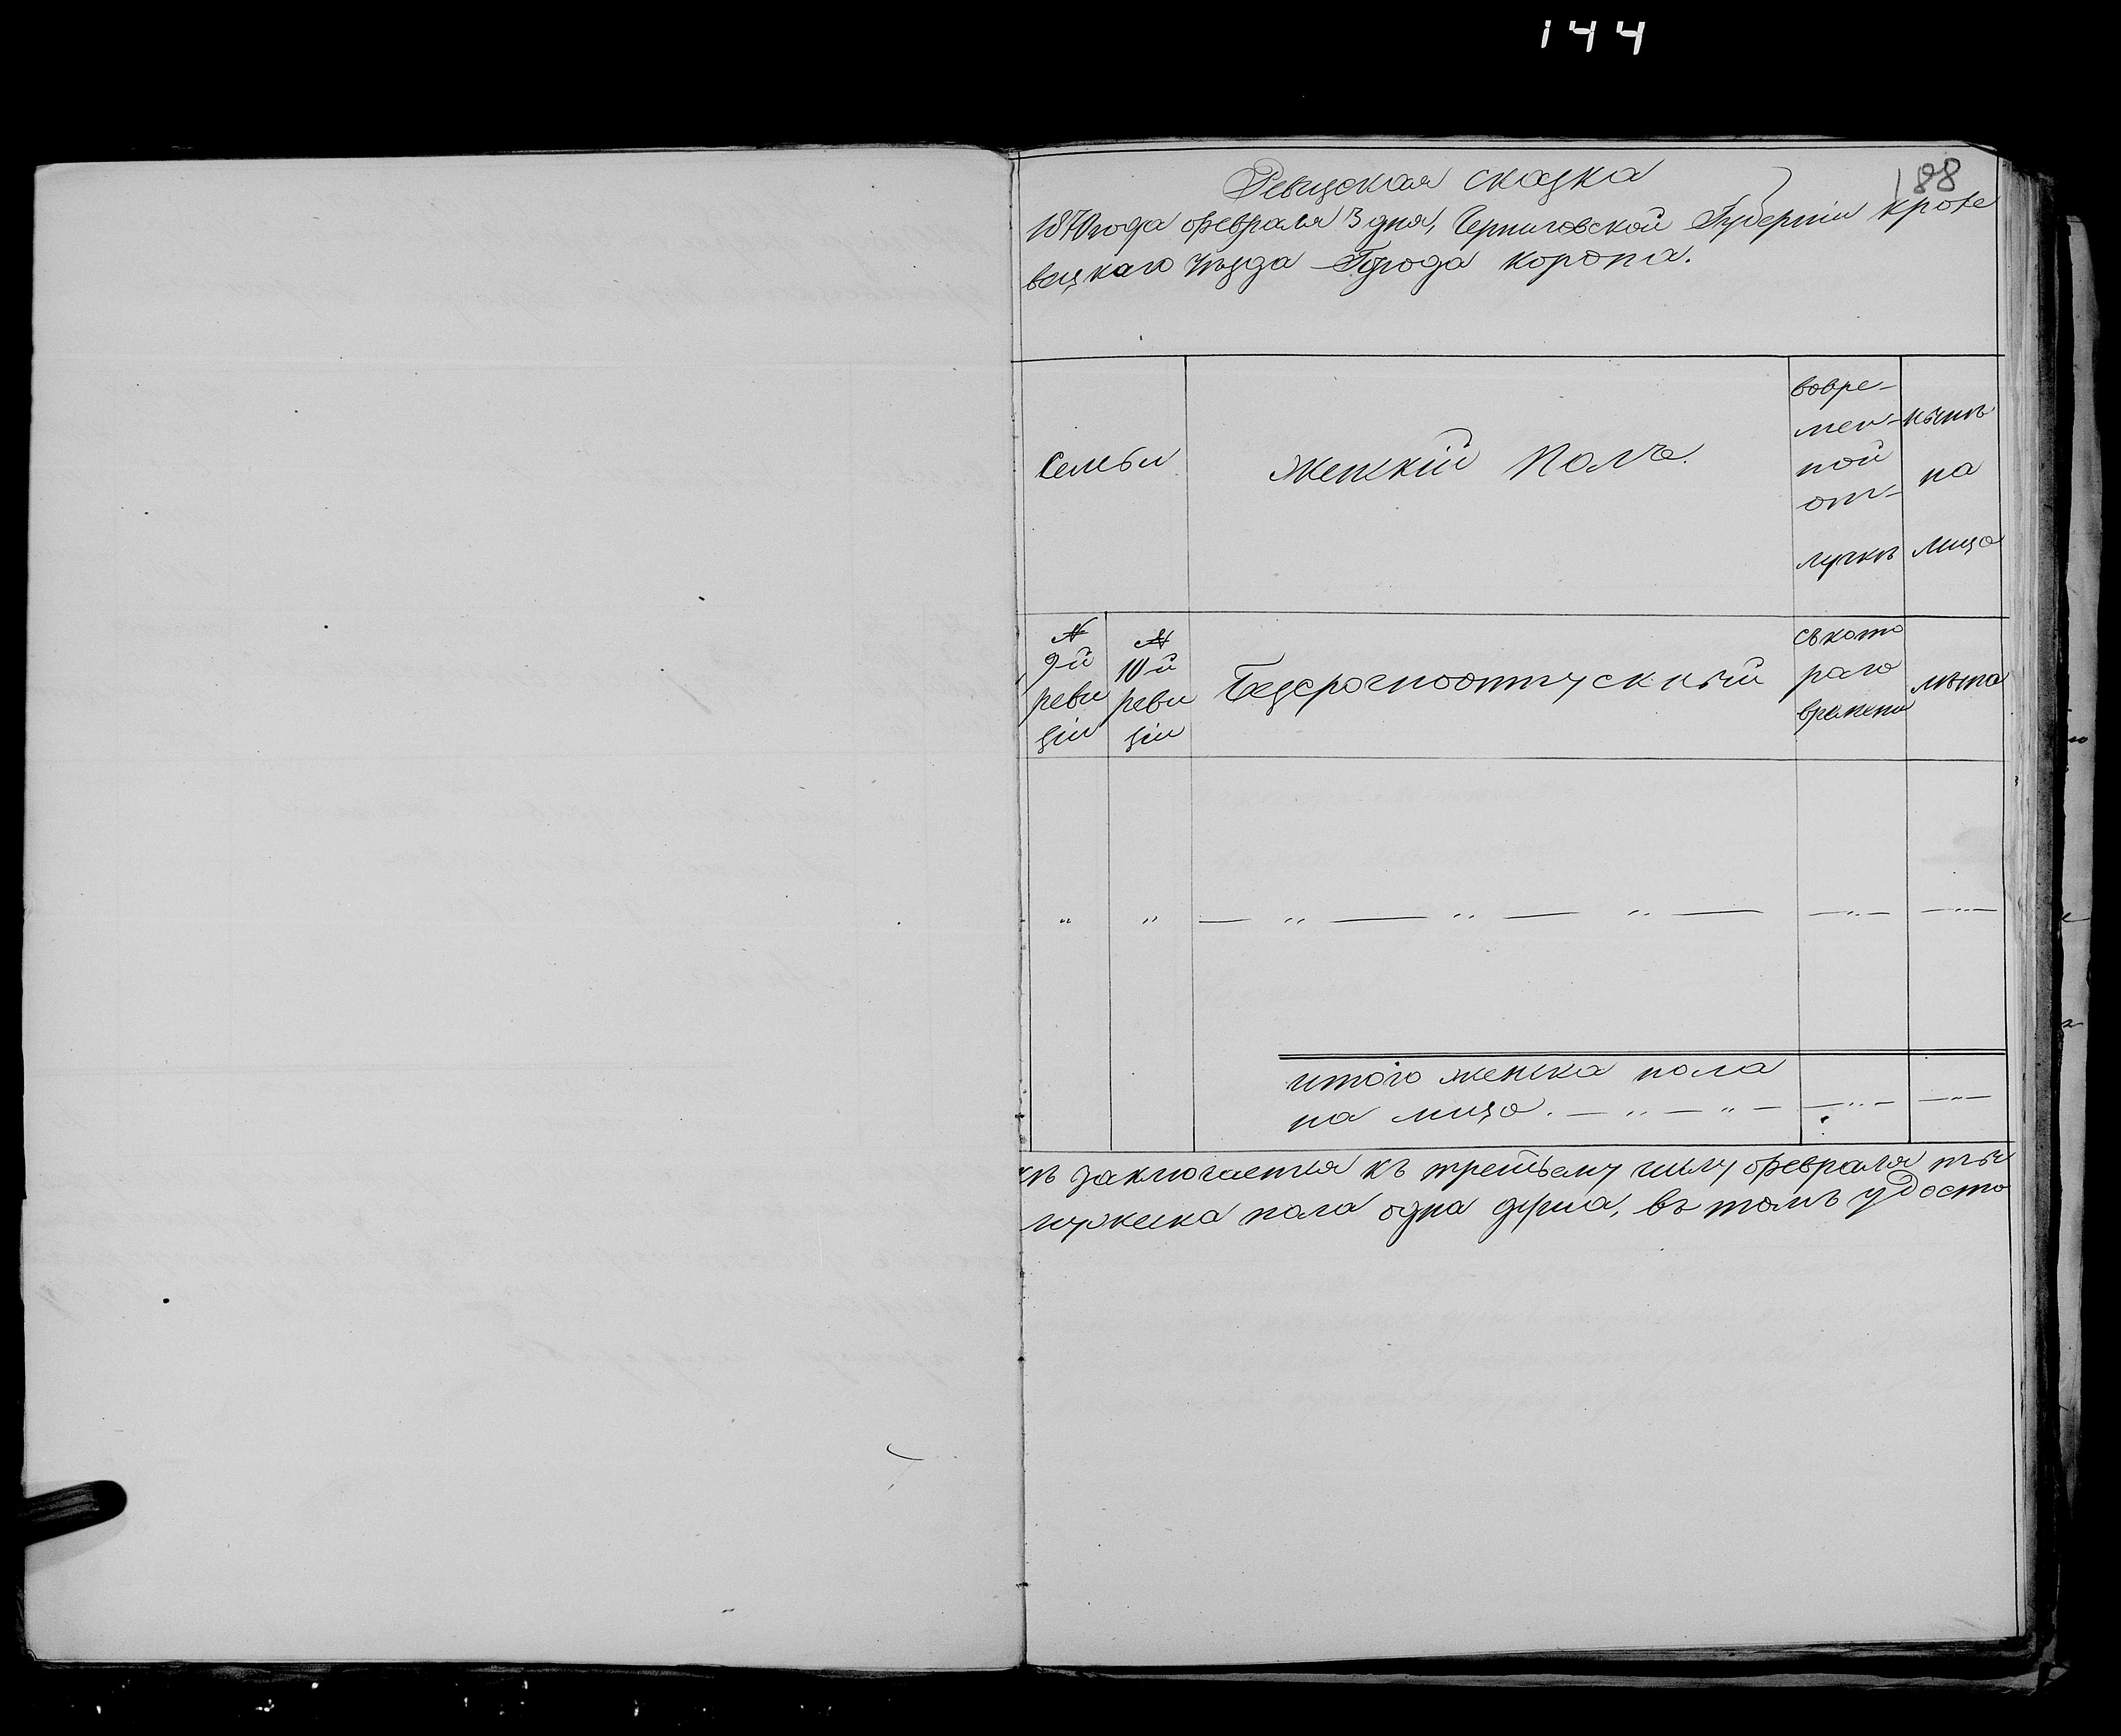 144
188
Ревизская сказка
1870 года февраля 3 дня, Черниговской Губернии Кроле
вецкаго уѣзда Города Коропа.
Семьи
Женскій Полъ.
вовре-
мен-
ной
от-
лучкѣ
нынѣ
на
лицо
№
9й
реви
зіи
№
10й
реви
зіи
Безсрочноотпускный
съ кото
раго
времени
лѣта
" " — " — " — " — — " — — " —
итого женска пола
на лицо. — " — " — — " — — " —
заключается къ третьему числу февраля
мужеска пола одна душа, въ томъ удосто